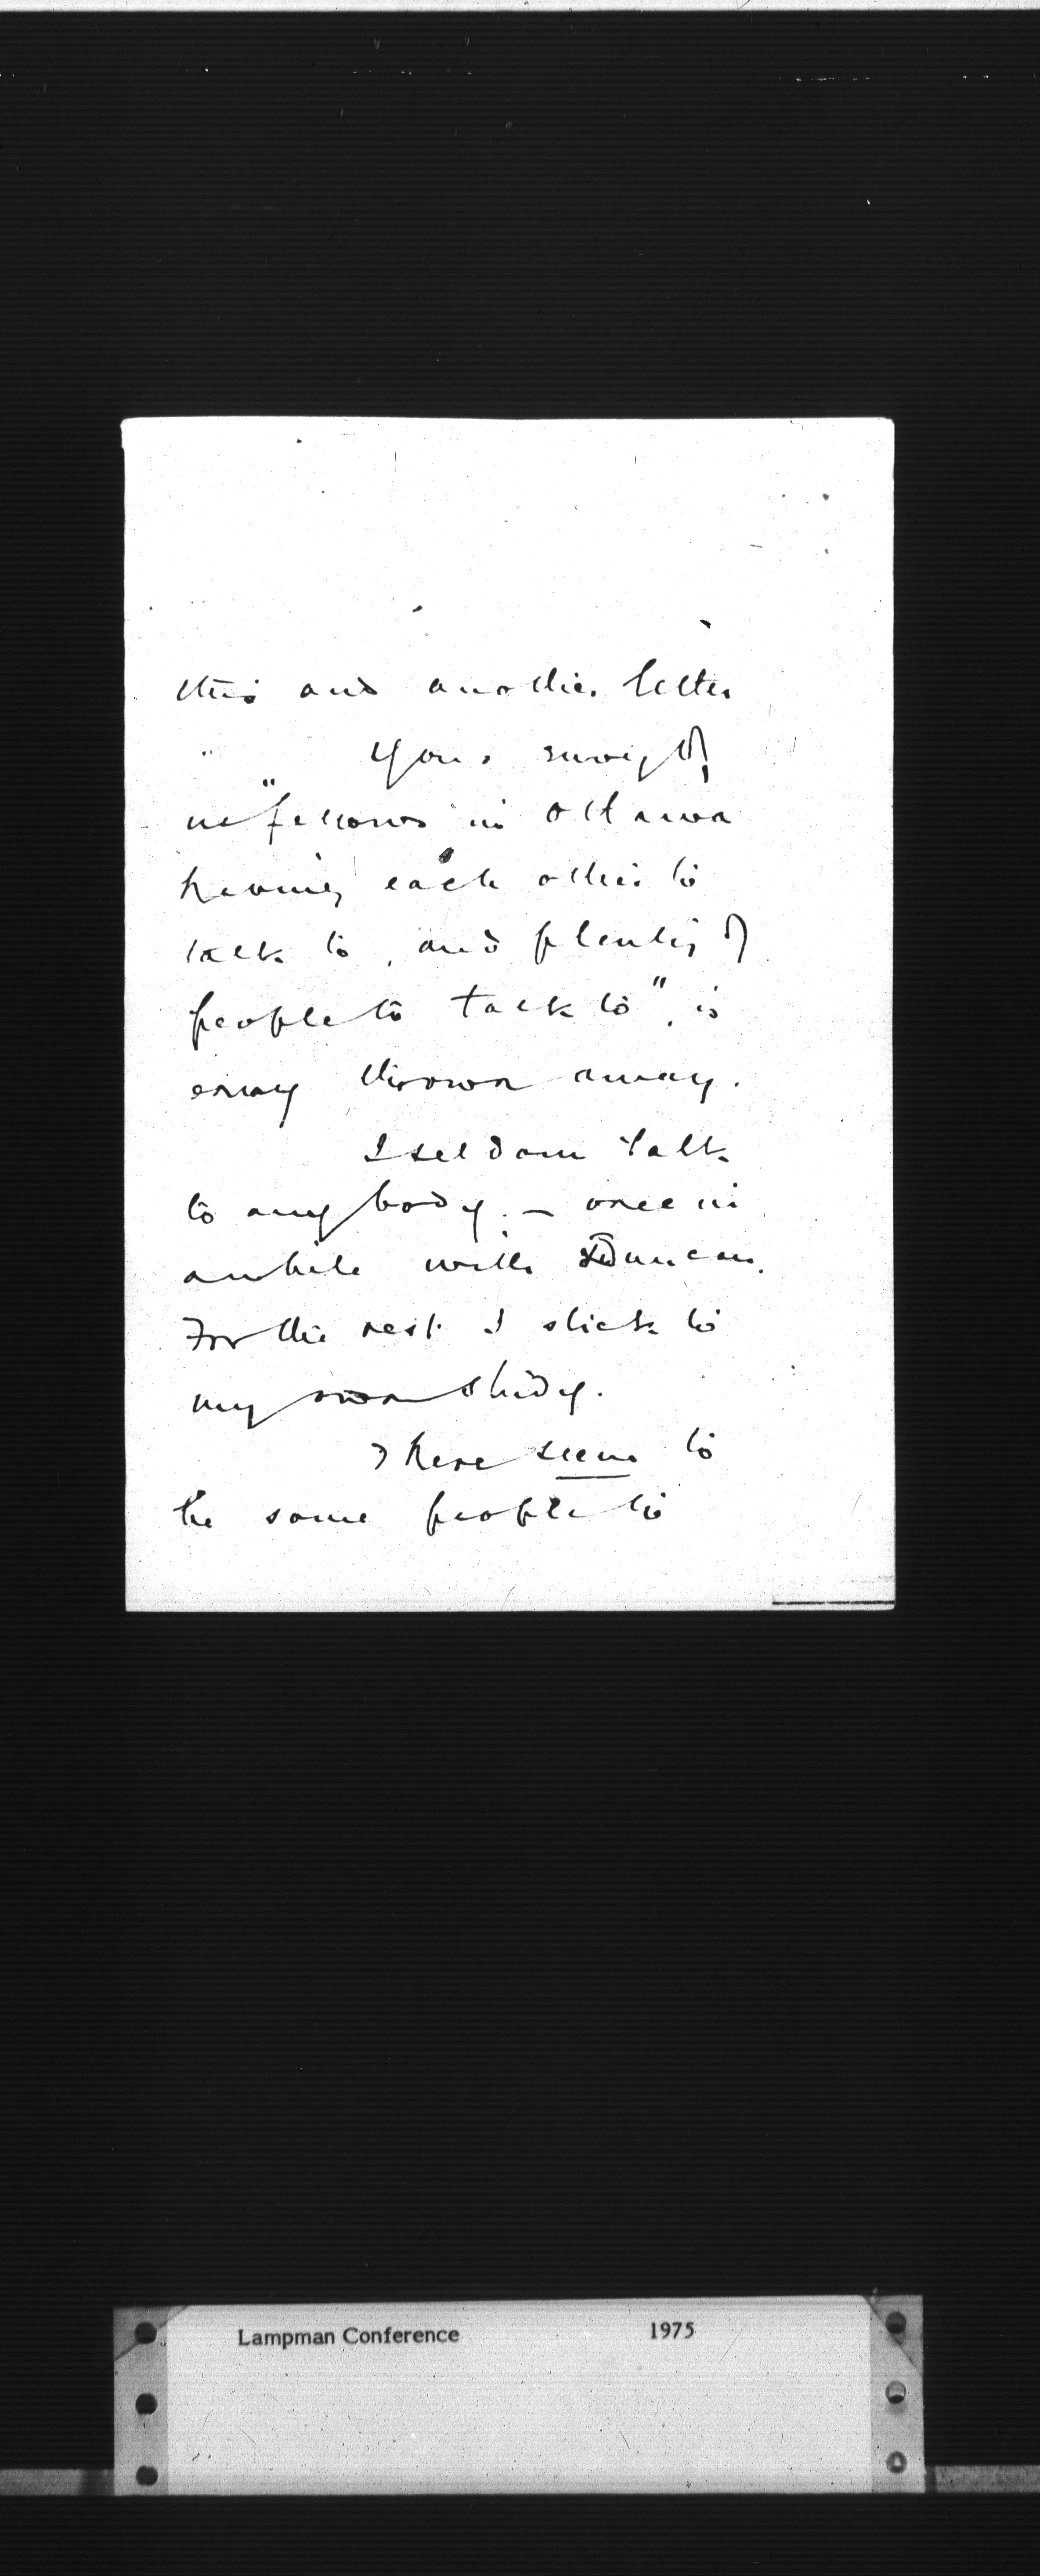 this and another letter
Your envy of
us "fellows in Ottawa
having each other to
talk to, and plenty of
people to talk to", is
envy thrown away.
I seldom talk
to anybody. — once in
awhile with Duncan.
For the rest I stick to
my own study.
There seem to
be some people to
Lampman Conference 1975